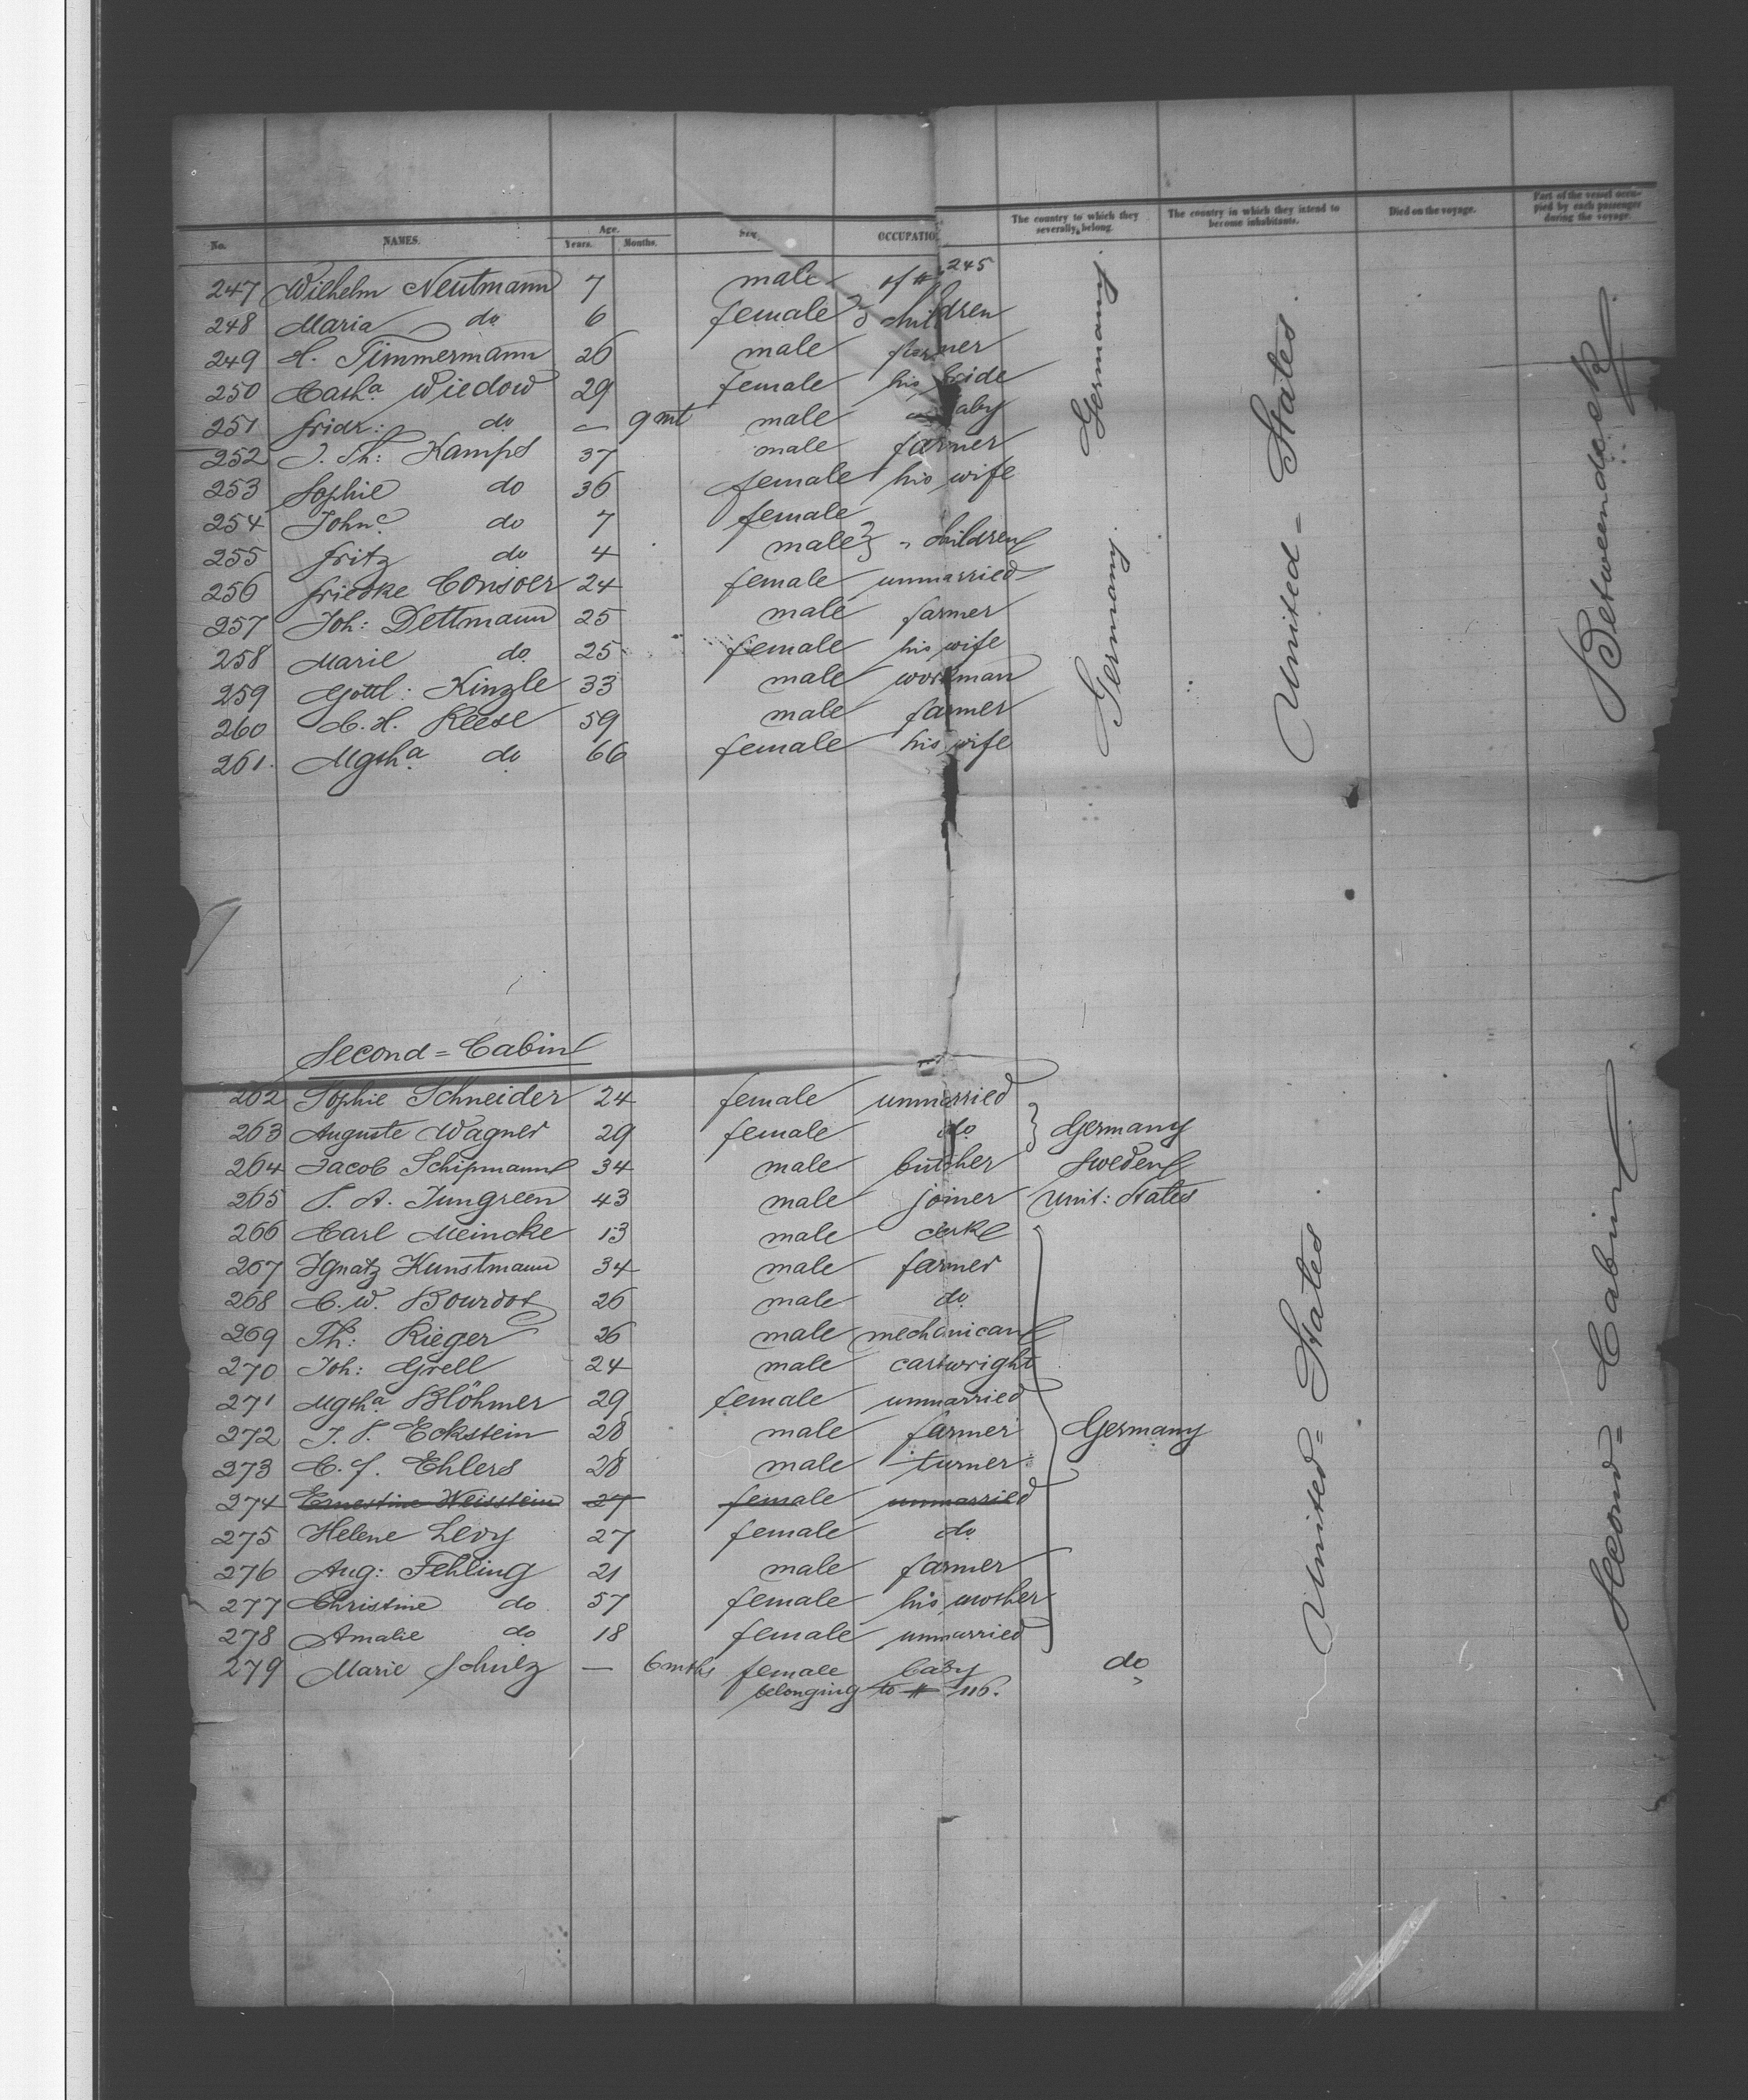 No. NAMES. Age. Years. Months. Sex. OCCUPATIO The country to which they severally belong. The country in which they intend to become inhabitants. Died on the voyage. Part of the vessel occupied by each passenger during the voyage.
247 Wilhelm Neutmann 7 male of # 245
248 Maria do 6 female } children
249 H. Timmermann 26 male farmer
250 Cath.a Wiedow 29 female his bride
251 Fridr: do — 9 mt male baby
252 J. Th: Kamps 37 male farmer
253 Sophie do 36 female his wife
254 John.e do 7 female
255 Fritz do 4 male } " children
256 Friedke Consoer 24 female unmarried
257 Joh: Dettmann 25 male farmer
258 Marie do 25 female his wife
259 Gottl: Kinzle 33 male workman
260 C. H. Reese 59 male farmer
261. Mgtha do 66 female his wife
Germany.
Germany.
United = States.
Betweendeck.
Second = Cabin
262 Sophie Schneider 24 female unmarried
263 Auguste Wagner 29 female do } Germany
264 Jacob Schipmann 34 male butcher Sweden
265 J. A. Jungreen 43 male joiner Unit: States
266 Carl Meincke 13 male clerk
267 Ignatz Kunstmann 34 male farmer
268 C. W. Bourdot 26 male do
269 Th: Rieger 26 male mechanican
270 Joh: Grell 24 male cartwright
271 Mgtha Blöhmer 29 female unmarried
272 J. S. Eckstein 28 male farmer Germany
273 C. F. Ehlers 28 male turner
274 Ernestine Weisstein 27 female unmarried
275 Helene Levy 27 female do
276 Aug: Fehling 21 male farmer
277 Christine do 57 female his mother
278 Amalie do 18 female unmarried
279 Marie Schulz — 6 mths female baby do
belonging to # 116.
United = States.
Second = Cabin